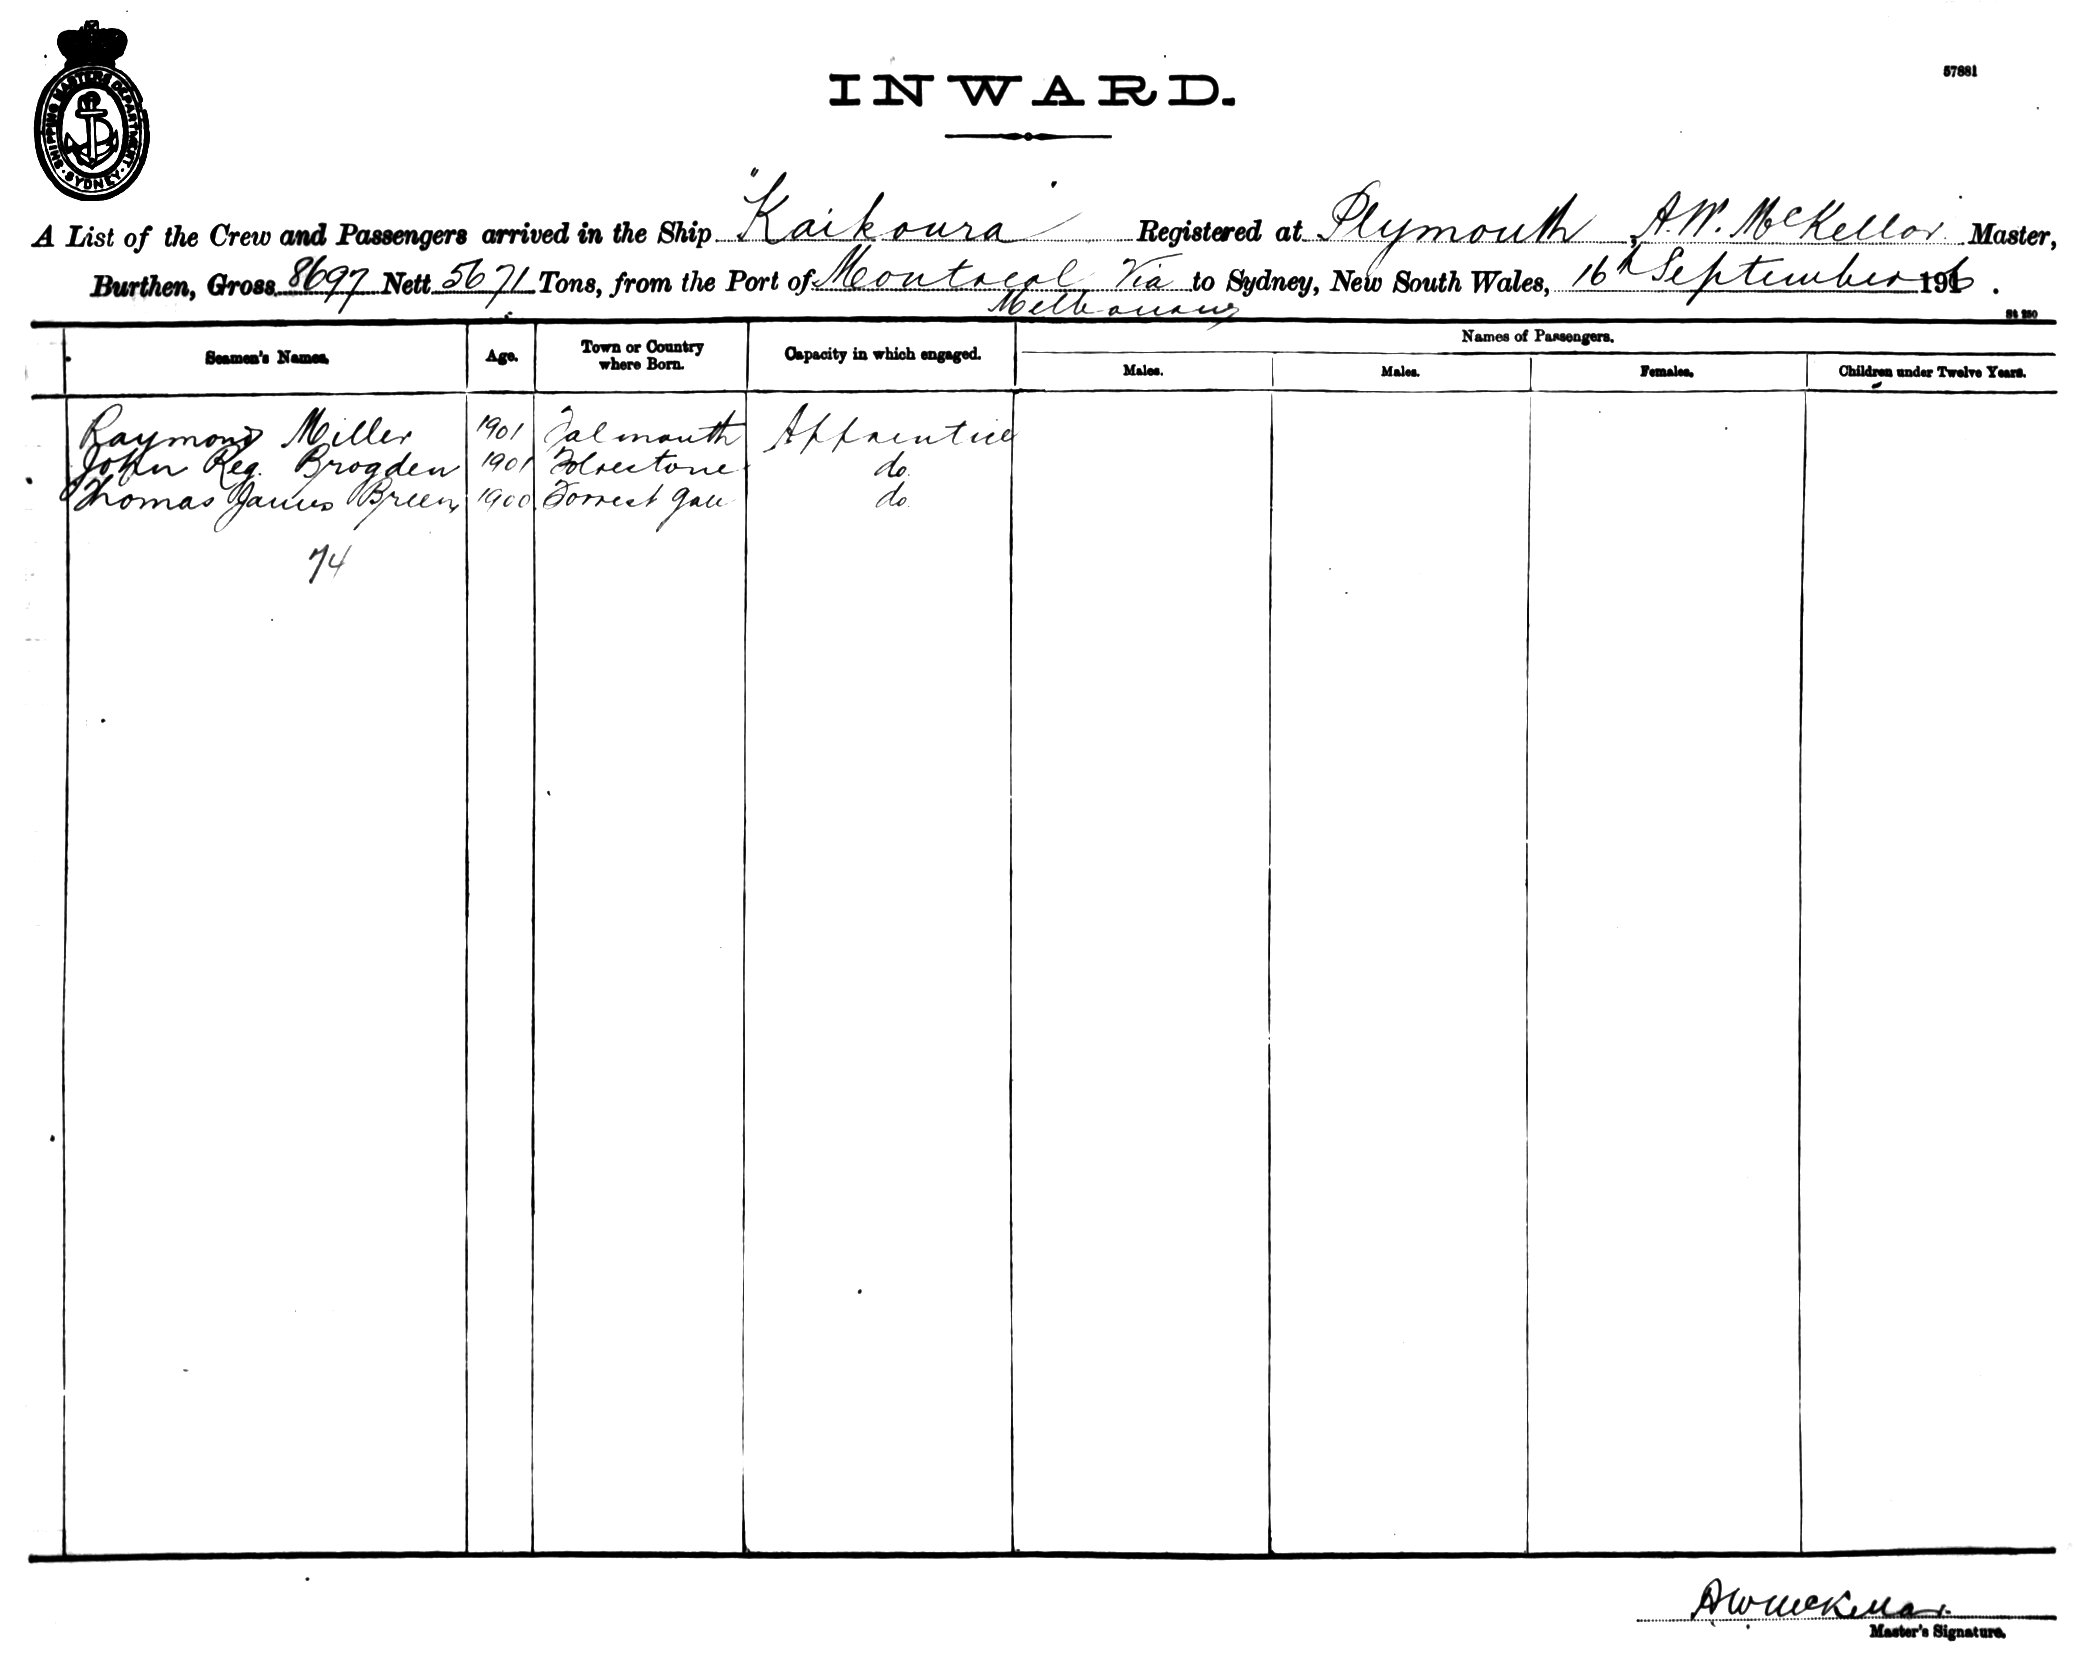 SHIPPING MASTERS DEPARTMENT
SYDNEY
57881
INWARD.
A List of the Crew and Passengers arrived in the Ship "Kaikoura" Registered at Plymouth, A.W. McKellar Master,
Burthen, Gross 8697 Nett 5671 Tons, from the Port of Montreal Via to Sydney, New South Wales, 16th September 1916.
Melbourne
St 250
Seamen's Names. Age. Town or Country where Born. Capacity in which engaged. Names of Passengers.
Males. Males. Females. Children under Twelve Years.
Raymond Miller 1901 Falmouth Apprentice
John Reg. Brogden 1901 Folkestone do
Thomas James Breen 1900 Forrest Gate do
74
AW McKellar.
Master's Signature.